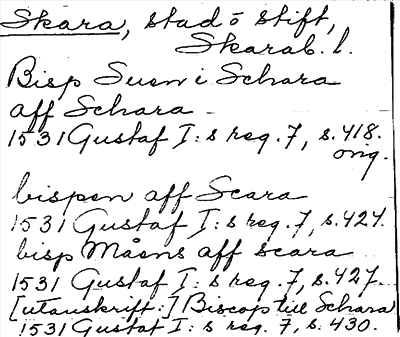 Skara, stad o stift,
Skarab. l.
Bisp Suen i Schara
aff Schara
1531 Gustaf I:s reg. 7, s. 418.
orig.
bispen aff Scara
1531 Gustaf I:s reg. 7, s. 427.
bisp Måens aff scara
1531 Gustaf I:s reg. 7, s. 427.
[utanskrift:] Biscop till Schara
1531 Gustaf I:s reg. 7, s. 430.